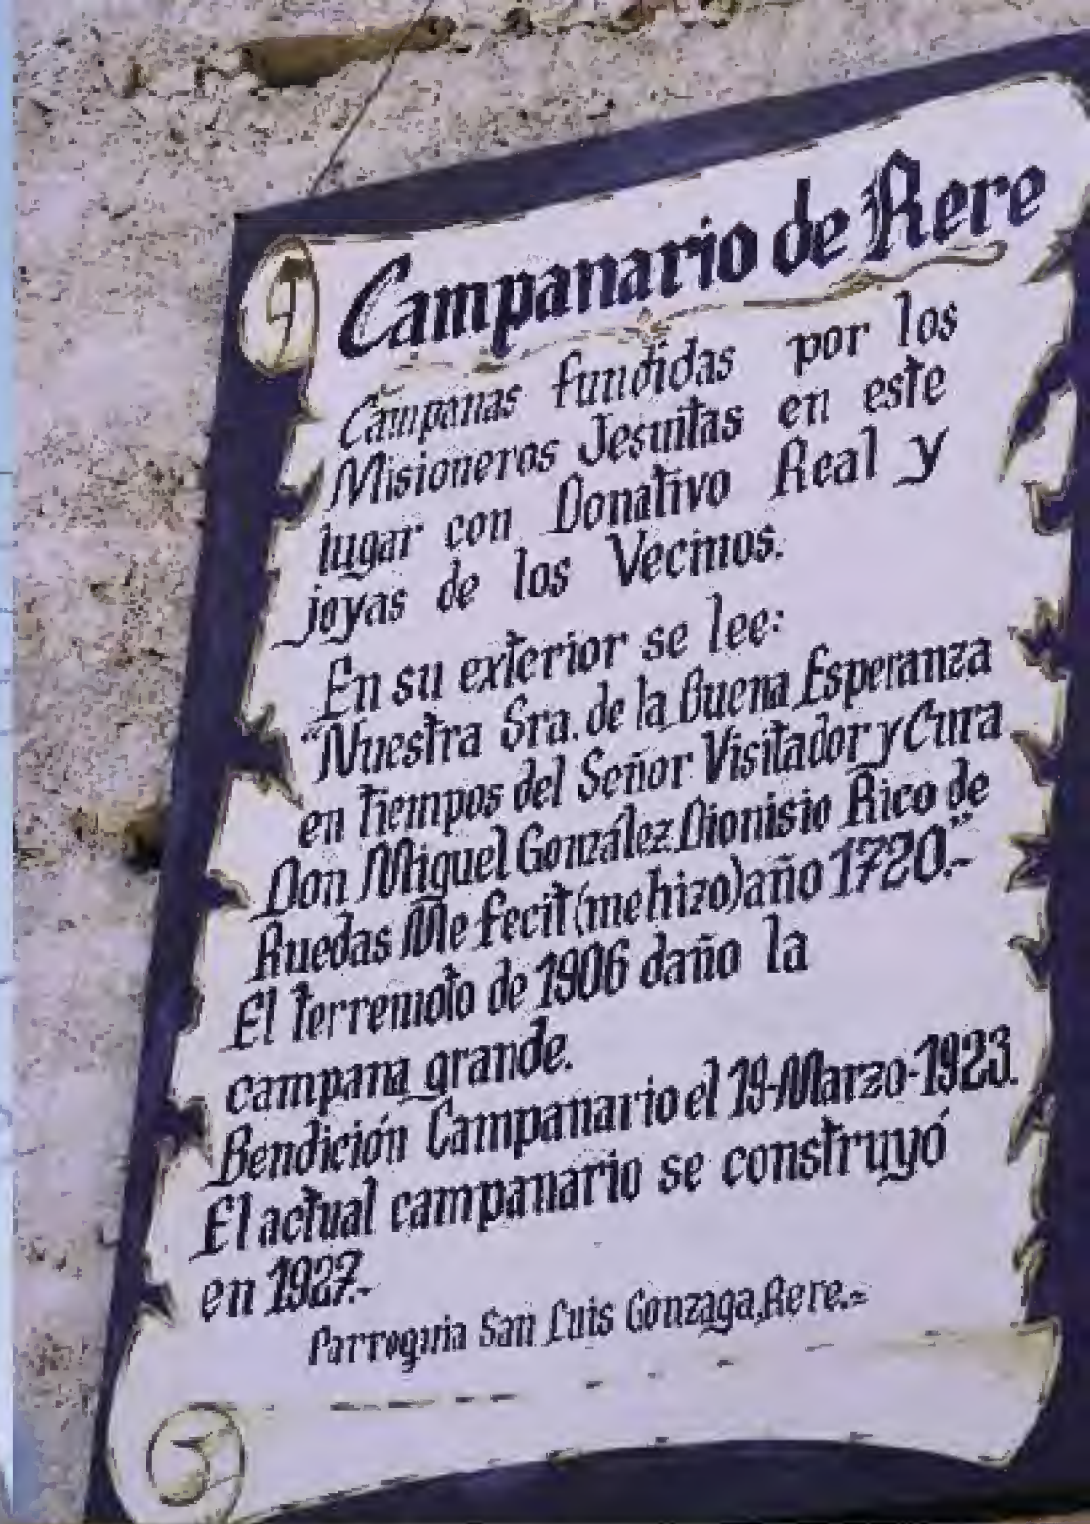 Campanario de Rere
Campanas fundidas por los
Misioneros Jesuitas en este
lugar con Donativo Real y
joyas de los Vecinos.
En su exterior se lee:
“Nuestra Sra. de la Buena Esperanza
en tiempos del Señor Visitador y Cura
Don Miguel González Dionisio Rico de
Ruedas Me fecit (me hizo) año 1720.”-
El terremoto de 1906 daño la
campana grande.
Bendición Campanario el 19-Marzo-1923.
El actual campanario se construyó
en 1927.-
Parroquia San Luis Gonzaga, Rere.=